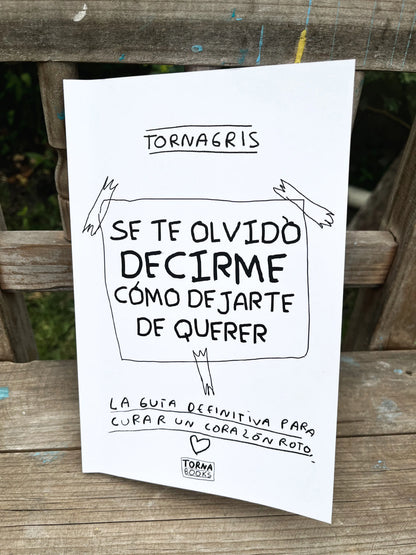 TORNAGRIS
SE TE OLVIDÓ
DECIRME
CÓMO DEJARTE
DE QUERER
LA GUÍA DEFINITIVA PARA
CURAR UN CORAZÓN ROTO.
TORNA
BOOKS